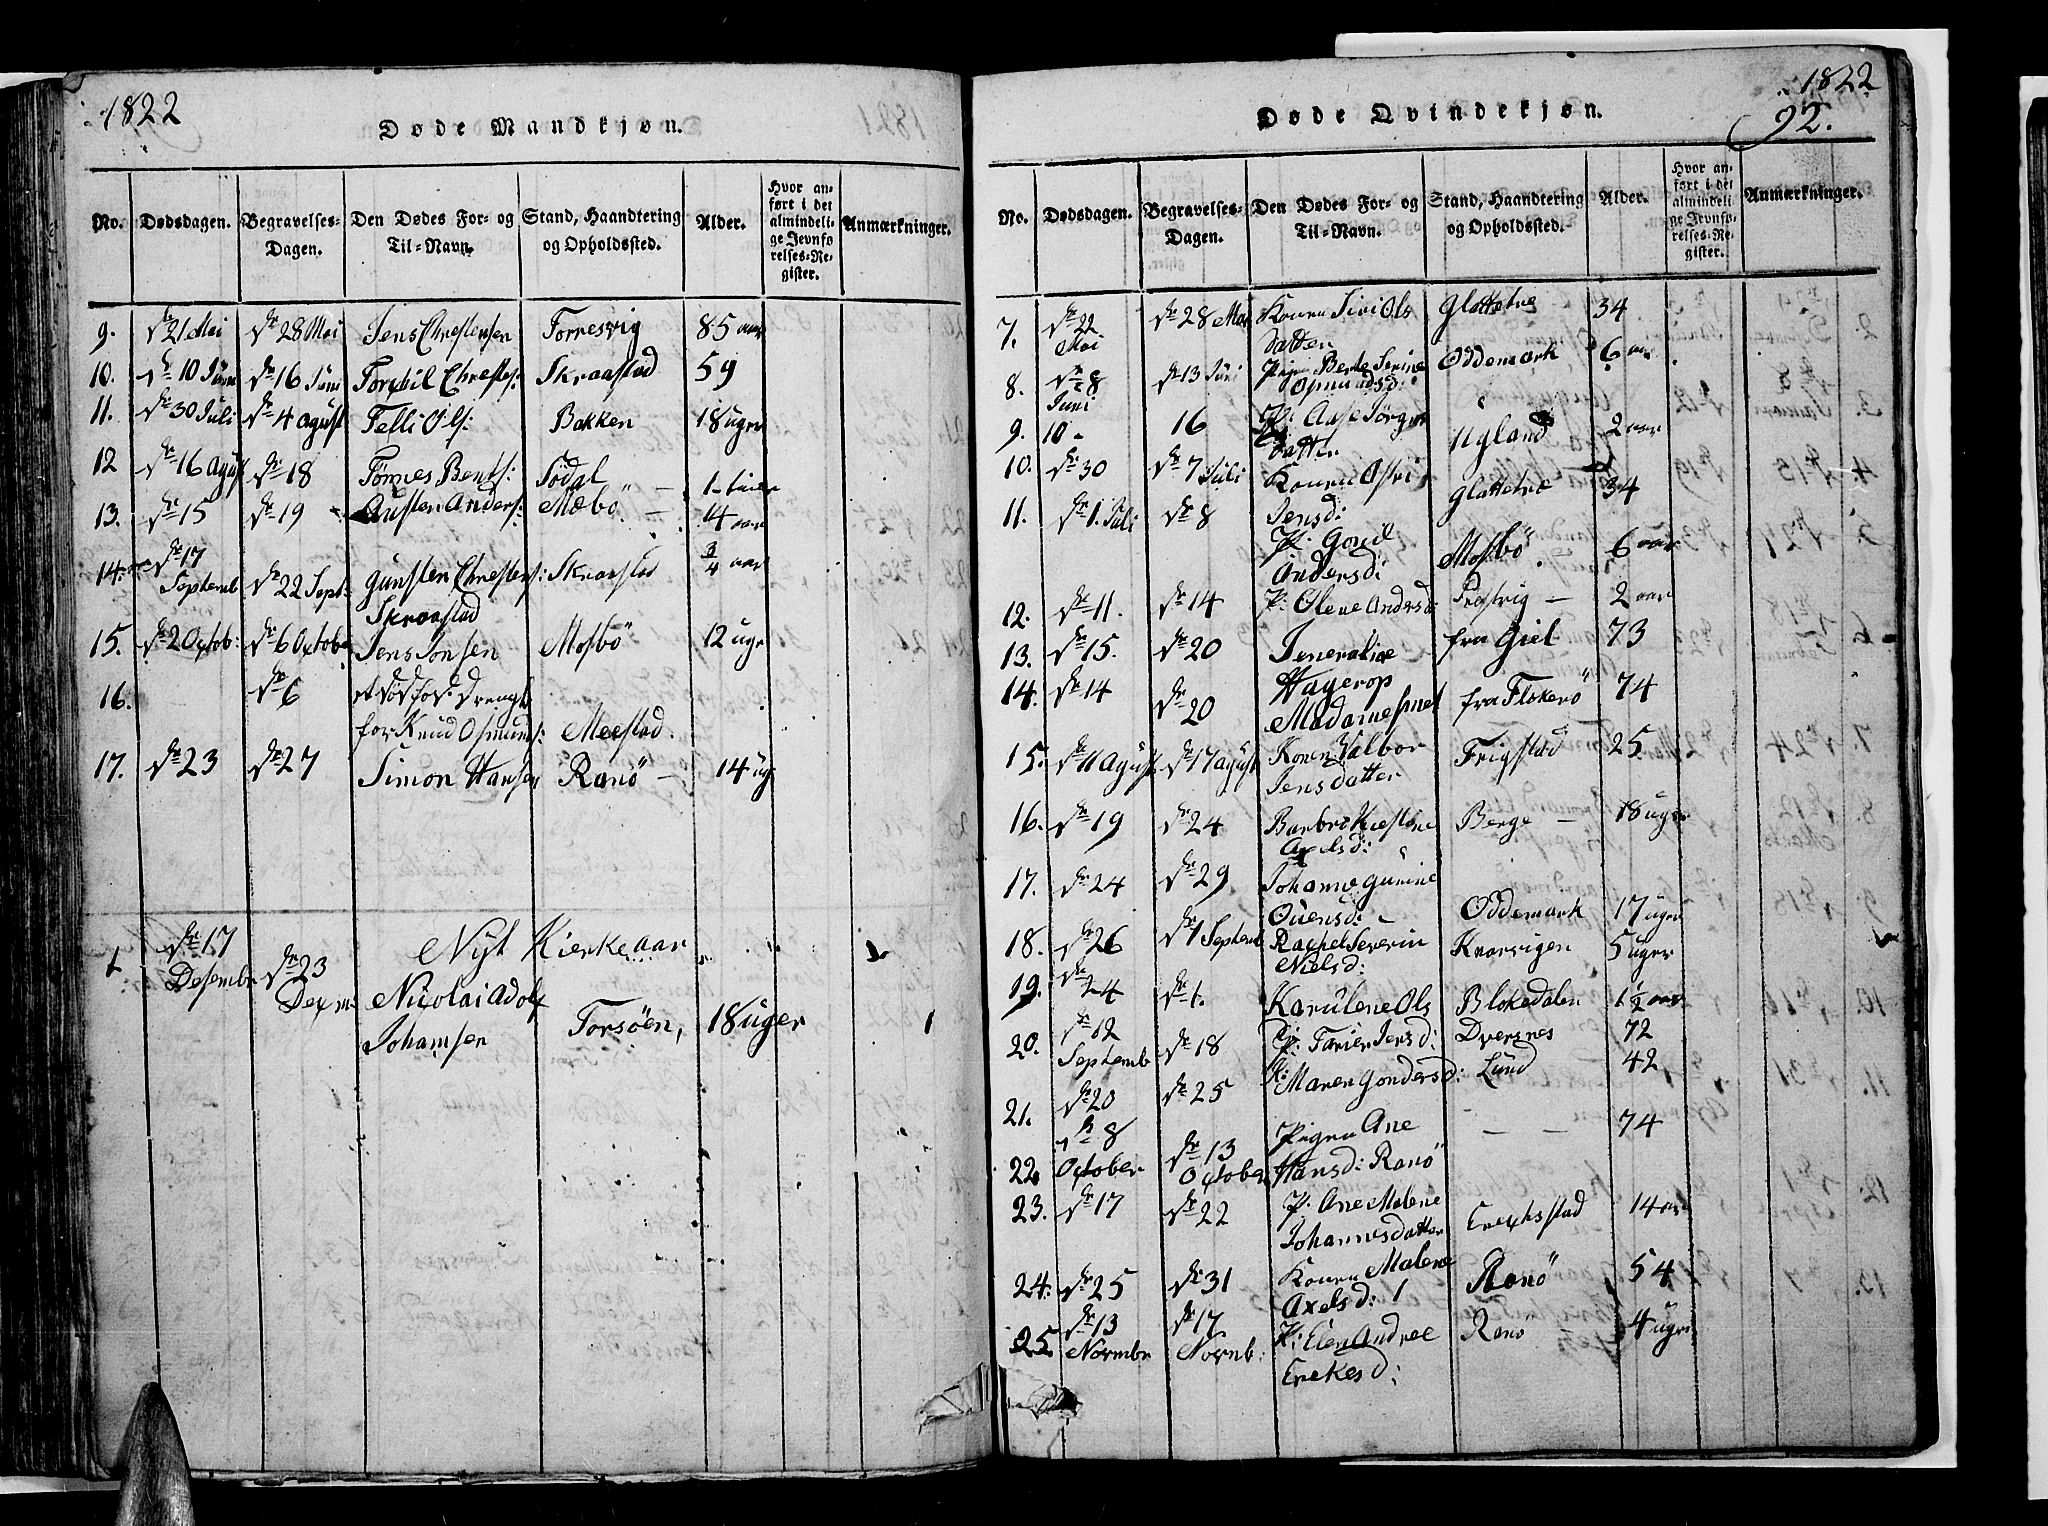 1822
Døde Mandkjøn.
No. Dødsdagen. Begravelses-Dagen. Den Dødes For- og Til-Navn. Stand, Haandtering og Opholdssted. Alder. Hvor anført i det almindelige Jevnførelses-Register. Anmærkninger.
9. d. 21 Mai d. 28 Mai Jens Chrestensen Torresvig 85 aar
10. d. 10 Juni d. 16 Juni Torkil Chrestes: Skraastad 59
11. d. 30 Juli d. 4 agust Telli Ols: Bakken 18 uger
12 d. 16 Agust d. 18 Tørres Bents: Sødal
13. d. 15 d. 19 Austen Anders: Mæbø 14 aar
14. d. 17 Septemb d. 22 Sept: Gunsten Chrestens: Skraastad 3/4 aar
Skraastad
15. d. 2 Octob: d. 6 Octobe Jens Jonsen Mosbø 12 ugr
16. d. 6 et dødfød: Dreng
for Knud Osmuns: Meestad.
17. d. 23 d. 27 Simon Hansen Ranø 14 ug
Nyt Kierke aar
1 d. 17 Desembr d. 23 Nicolai Adolf
Johamsen Torsøen, 18 uger 1
1822
92.
Døde Qvindekjøn.
No. Dødsdagen. Begravelses-Dagen. Den Dødes For- og Til-Navn. Stand, Haandtering og Opholdssted. Alder. Hvor anført i det almindelige Jevnførelses-Register. Anmærkninger.
7. d. 22 Mai d. 28 Mai Konen Siri Ols Glattetre 34
datter
8. d. 8 Juni d. 13 Juni Pige Berte Serine Oddemark 6 aar
Osmundsd:
9. 10 16 P: Aase Jørgen Ugland 2 aar
datter
10. d. 30 d. 7 Juli Konen Astri Glattetre 34
11. d. 1. Juli d. 8 Jensd:
P: Gonil Mosbø 6 aar
Andersd:
12. d. 11. d. 14 P: Olene Andersd: 2 aar
13. d. 15. d. 20 Jeneralinne fra Giel 73
14. d. 14 d. 20 Hagerop
Madame Smet fra Flekerø 74
15. d. 11 Agust d. 17 agust Konen Valbor Frigstad 25
Jensdatter
16. d. 19 d. 24 Barbro Kiestine Berge 18 uger
Axelsd:
17. d. 24 d. 29 Johanne Gunine
Ouensd: Oddemark 17 uger
18. d. 26 d. 1 Septemb Rachel Severin Kvarvigen 5 uger
Nielsd:
19. d. 24 d. 1. Karulene Ols Blokedalen 1 1/2 aar
20. d. 12 Septemb d. 18 P: Tarier Jersd: Dversnes 72
21. d. 20 d. 25 K: Maren Gondersd: Lund 42
22 d. 8 October d. 13 October Pigen Ane — — 74
Hansd: Ranø
23. d. 17 d. 22 P: Ane Malene
Johannesdatter Erechsstad 14 aar
24. d. 25 d. 31 Konen Malene Ranø 54
Axelsd:
25 d. 13 Novmbr d. 17 Novmb: P: Elen Andree Ranø 4 ugr
Erekesd: